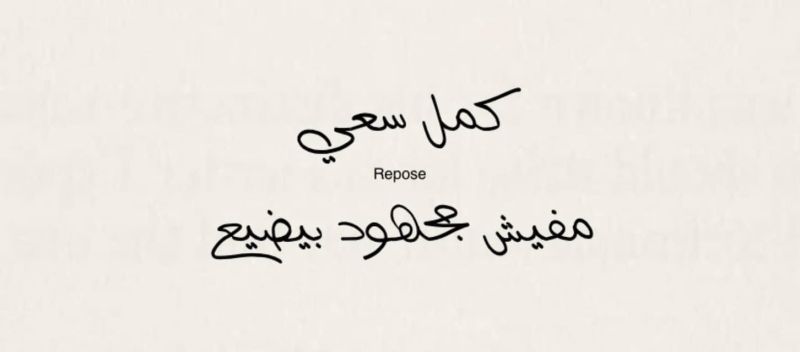 كمل سعي
Repose
مفيش مجهود بيضيع